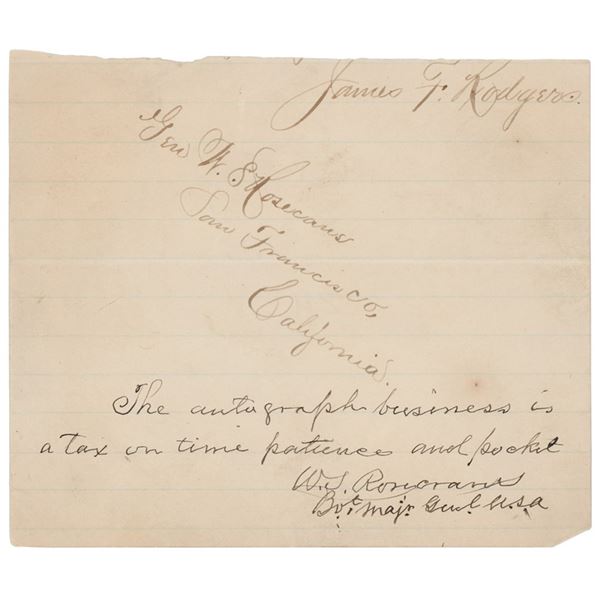 James F. Rodgers.
Gen W. S Rosecans
San Francisco,
California.
The autograph business is
a tax on time patience and pocket
W. S. Rosecrans
Bvt. Majr. Genl. U.S.A